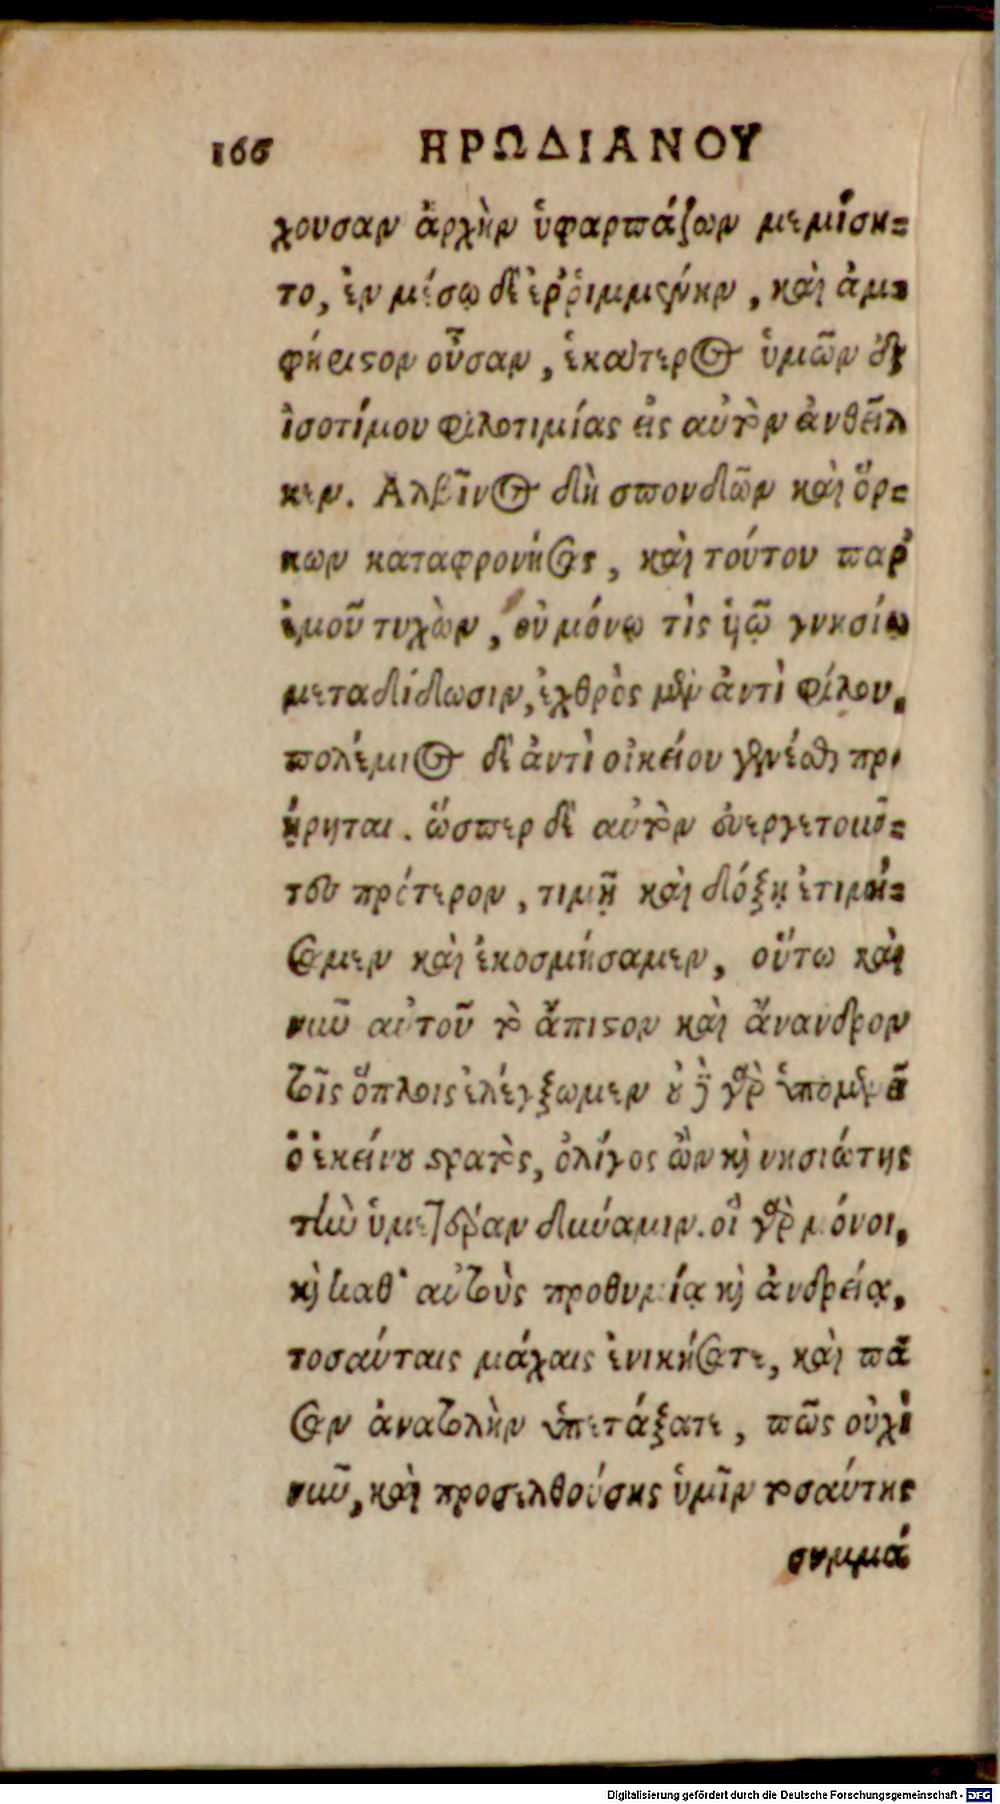 166 ΗΡΩΔΙΑΝΟΥ
χουσαν ἀρχὴν ὑφαρπάζων μεμίση-
το, ἐν μέσῳ δὲ ἐῤῥιμμένην, καὶ ἀμ-
φήριστον οὖσαν, ἑκάτερος ὑμῶν ἐξ
ἰσοτίμου φιλοτιμίας εἰς αὑτὸν ἀνθεῖλ
κεν. Αλβῖνος δὴ σπονδῶν καὶ ὅρ-
κων καταφρονήσας, καὶ τούτου παρ᾽
ἐμοῦ τυχὼν, οὗ μόνῳ τὶς υἱῷ γνησίῳ
μεταδίδωσιν, ἐχθρὸς μὲν ἀντὶ φίλου,
πολέμιος δὲ ἀντὶ οἰκείου γενέσθαι προ
ῄρηται. ὥσπερ δὲ αὐτὸν εὐεργετοῦν-
τες πρότερον, τιμῇ καὶ δόξῃ ἐτιμή-
σαμεν καὶ ἐκοσμήσαμεν, οὕτω καὶ
νῦν αὐτοῦ τὸ ἄπιστον καὶ ἄνανδρον
τοῖς ὅπλοις ἐλέγξωμεν οὐ γὰρ ὑπομενεῖ
ὁ ἐκείνου στρατὸς, ὀλίγος ὢν καὶ νησιώτης
τὴν ὑμετέραν δύναμιν. οἳ γὰρ μόνοι,
καὶ καθ᾽ αὑτοὺς προθυμίᾳ καὶ ἀνδρείᾳ,
τοσαύταις μάχαις ἐνικήσατε, καὶ πᾶ
σαν ἀνατολὴν ὑπετάξατε, πῶς οὐχὶ
νῦν, καὶ προσελθούσης ὑμῖν τοσαύτης
συμμά
Digitalisierung gefördert durch die Deutsche Forschungsgemeinschaft - DFG